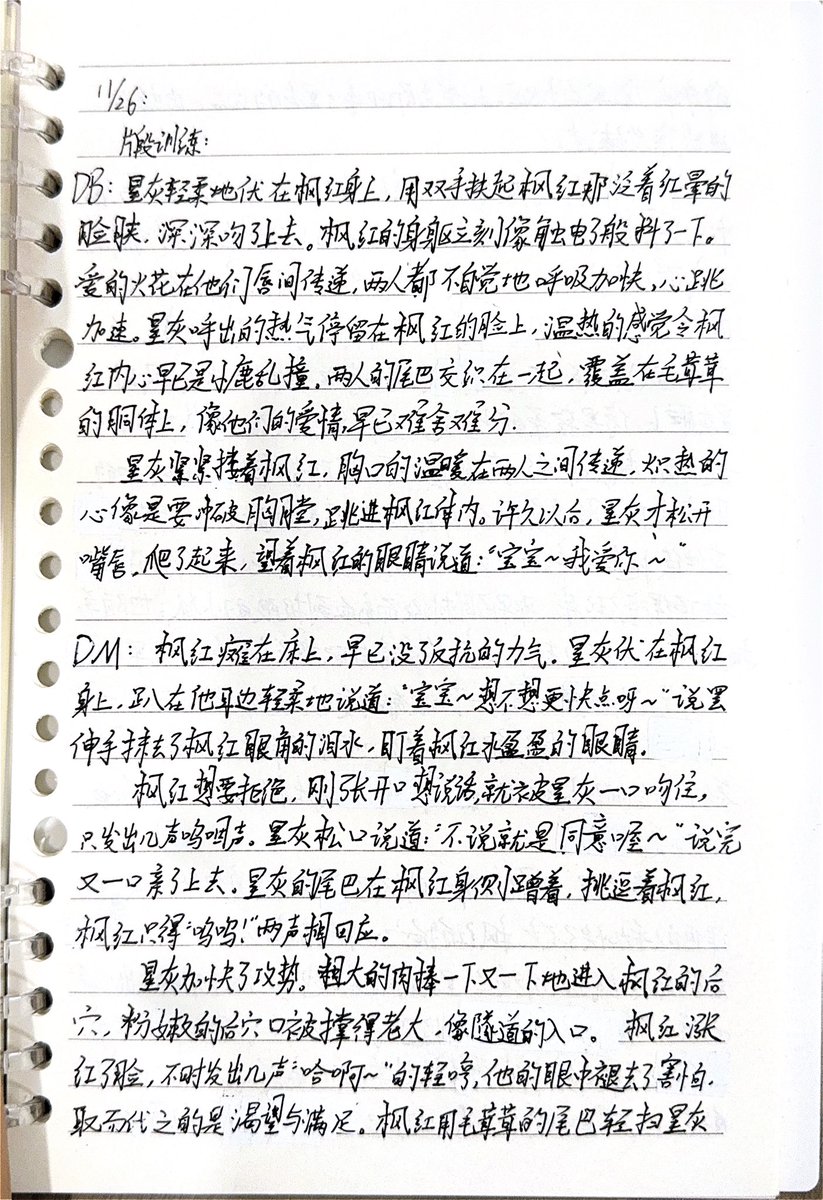 11/26:
片段训练:
DB: 星灰轻柔地伏在枫红身上，用双手扶起枫红那泛着红晕的
脸颊，深深吻了上去。枫红的身躯立刻像触电了般抖了一下。
爱的火花在他们唇间传递，两人都不自觉地呼吸加快，心跳
加速。星灰呼出的热气停留在枫红的脸上，温热的感觉令枫
红内心早已是小鹿乱撞。两人的尾巴交织在一起，覆盖在毛茸茸
的胴体上，像他们的爱情，早已难舍难分.
星灰紧紧搂着枫红，胸口的温暖在两人之间传递，炽热的
心像是要冲破胸膛，跳进枫红体内。许久以后，星灰才松开
嘴唇，爬了起来，望着枫红的眼睛说道：“宝宝~我爱你~”
DM: 枫红瘫在床上，早已没了反抗的力气。星灰伏在枫红
身上，趴在他耳边轻柔地说道：“宝宝~想不想更快点呀~”说罢
伸手抹去了枫红眼角的泪水，盯着枫红水盈盈的眼睛.
枫红想要拒绝，刚张开口想说话，就被星灰一口吻住，
只发出几声呜咽声。星灰松口说道：“不说就是同意喔~”说完
又一口亲了上去。星灰的尾巴在枫红身侧蹭着，挑逗着枫红，
枫红只得“呜呜！”两声相回应。
星灰加快了攻势。粗大的肉棒一下又一下地进入枫红的后
穴，粉嫩的后穴口被撑得老大，像隧道的入口。枫红涨
红了脸，不时发出几声“哈啊~”的轻哼，他的眼中褪去了害怕，
取而代之的是渴望与满足。枫红用毛茸茸的尾巴轻扫星灰